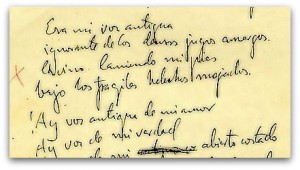 Era mi voz antigua
ignorante de los densos jugos amargos.
lamiendo mis pies
bajo los fragiles helechos mojados.
¡Ay voz antigua de mi amor
Ay voz de mi verdad
Ay voz de mi abierto costado